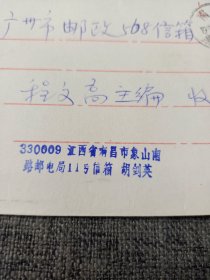 广州市邮政508信箱
程文高主编 收
330009 江西省南昌市象山南
路邮电局115信箱 胡剑英